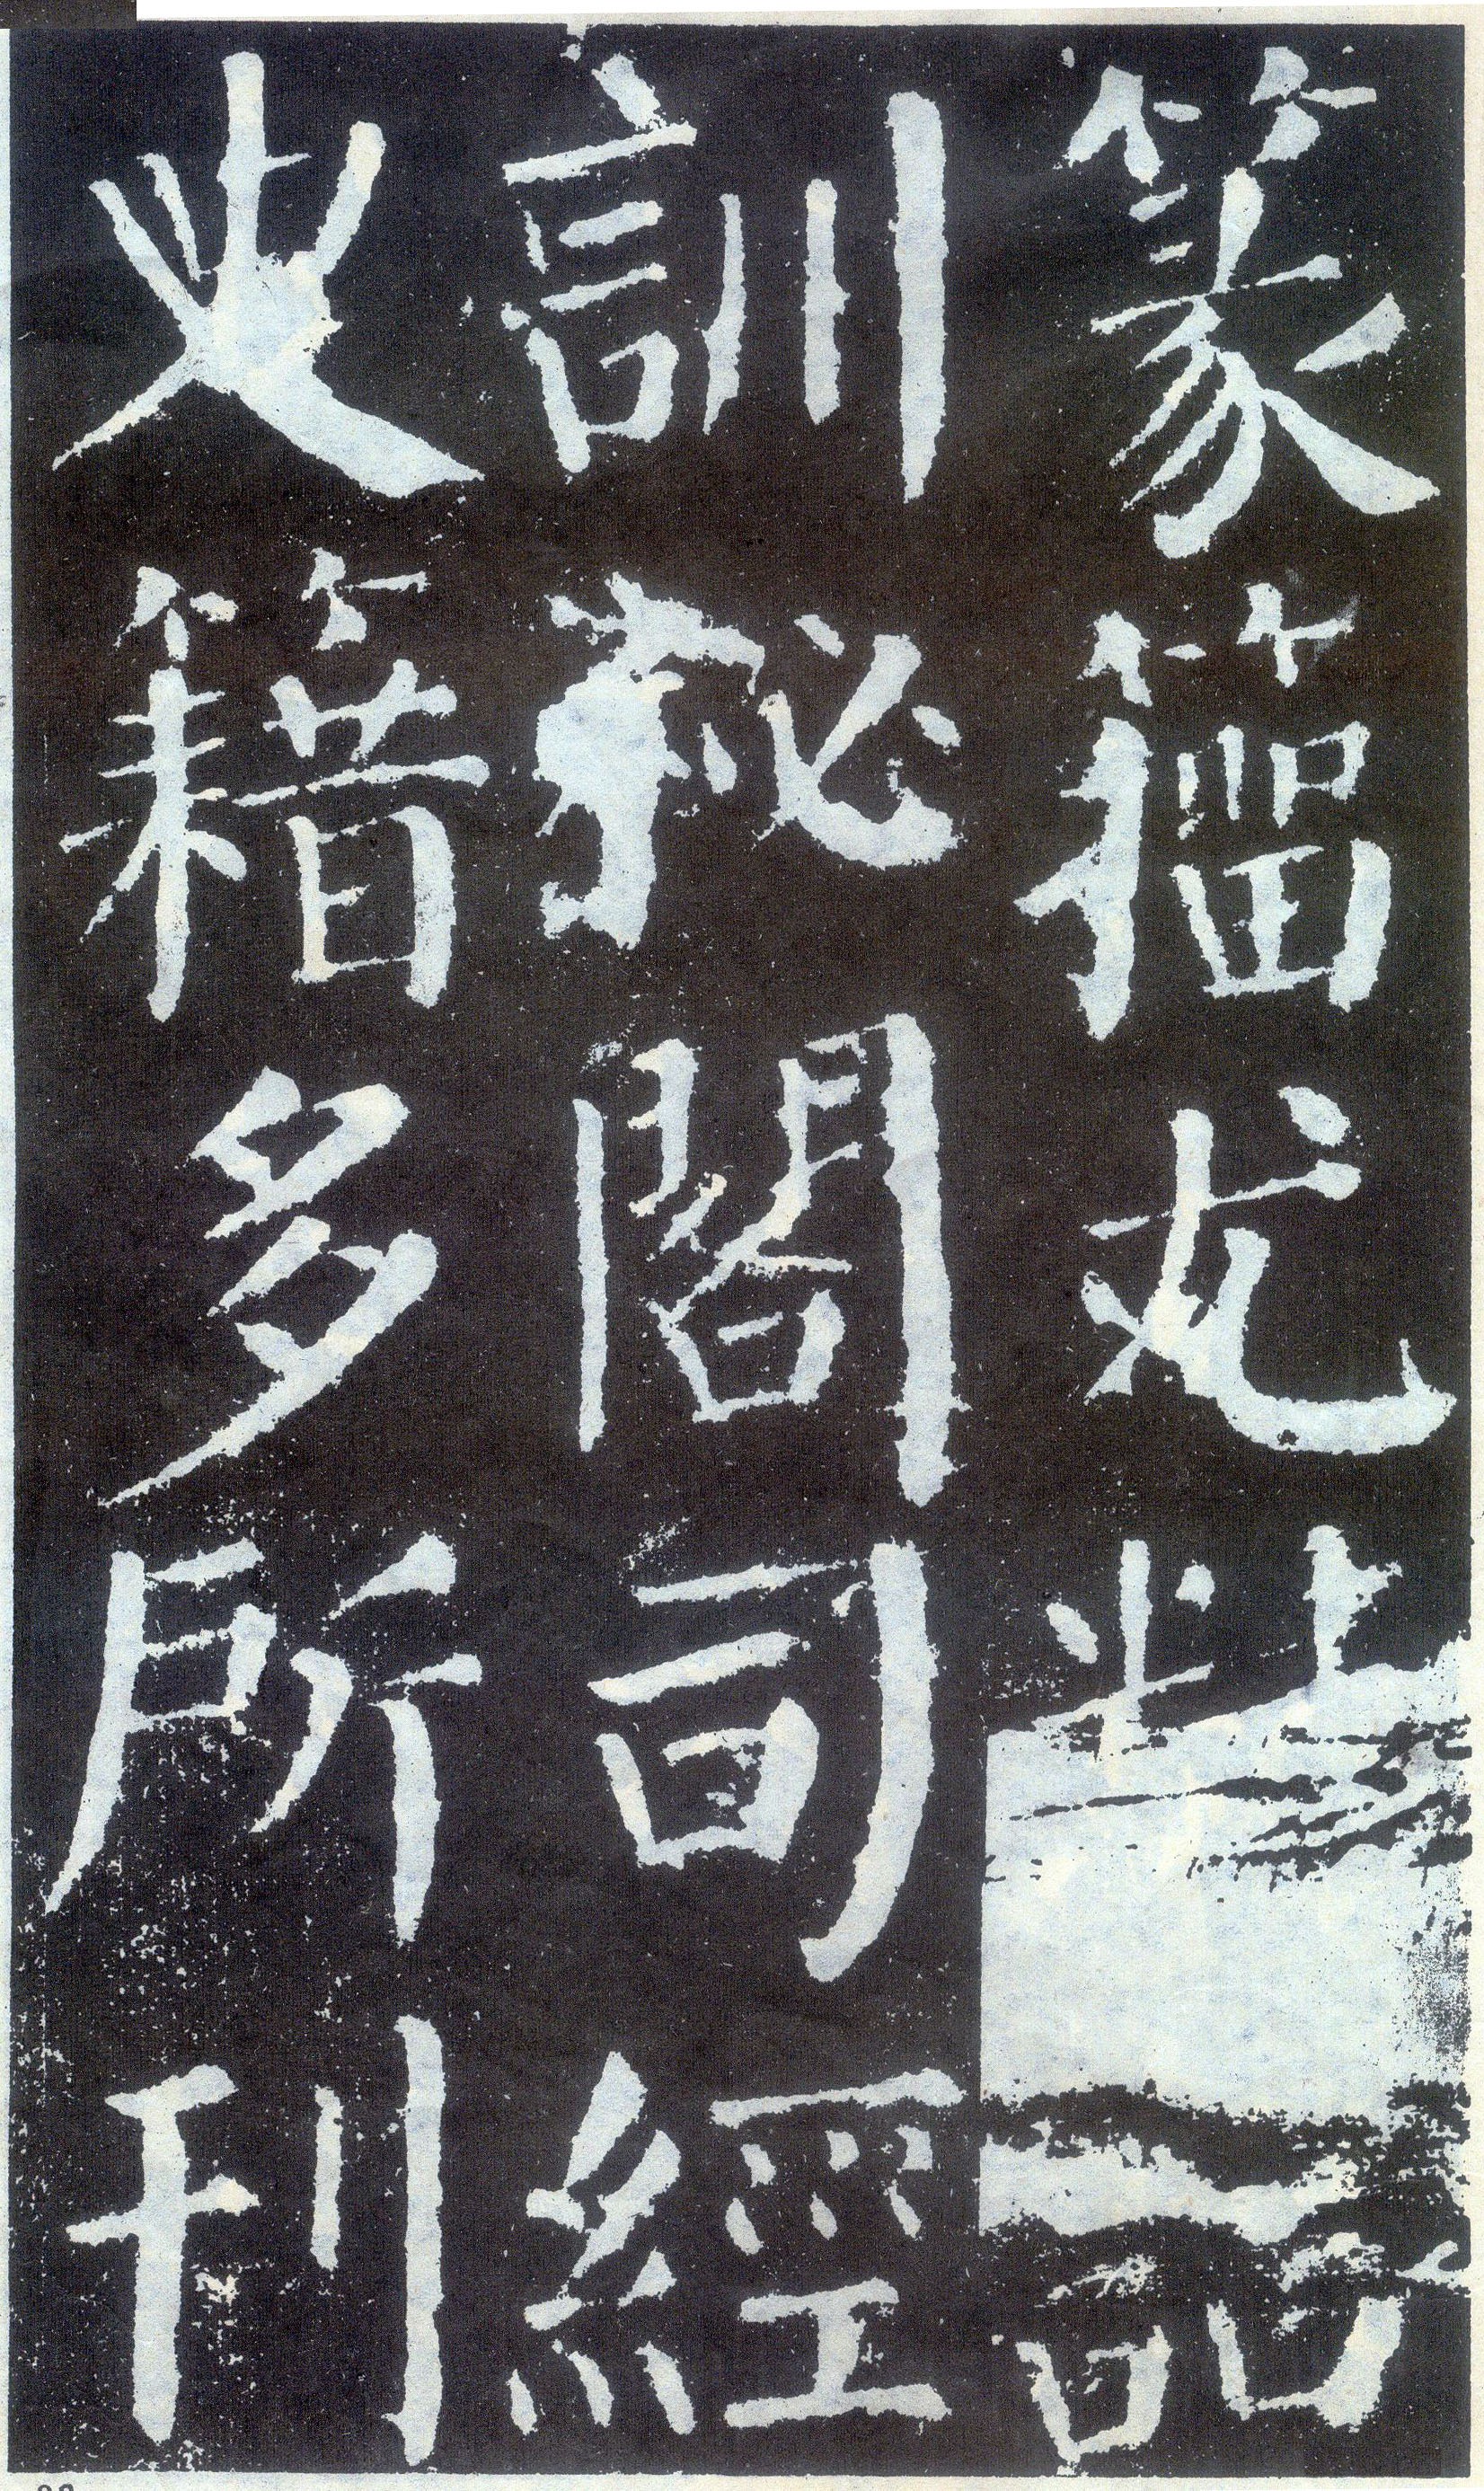 篆籀尤精詁
訓祕閣司經
史籍多所刊